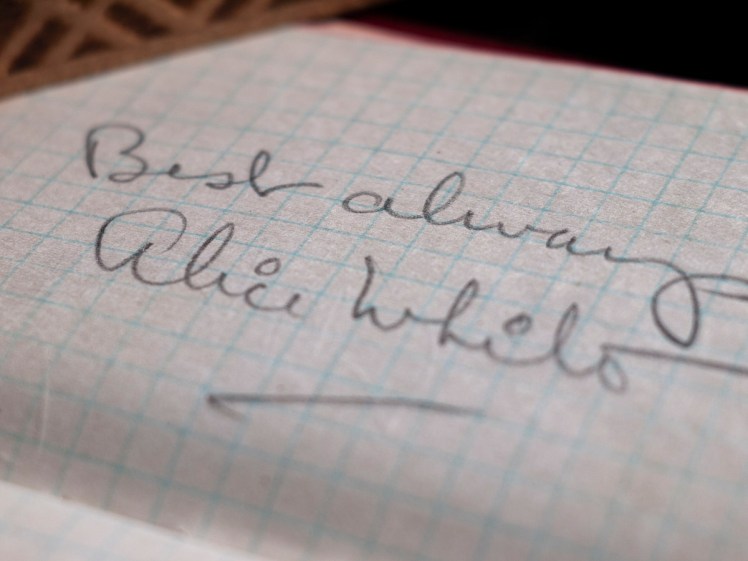 Best always
Alice White